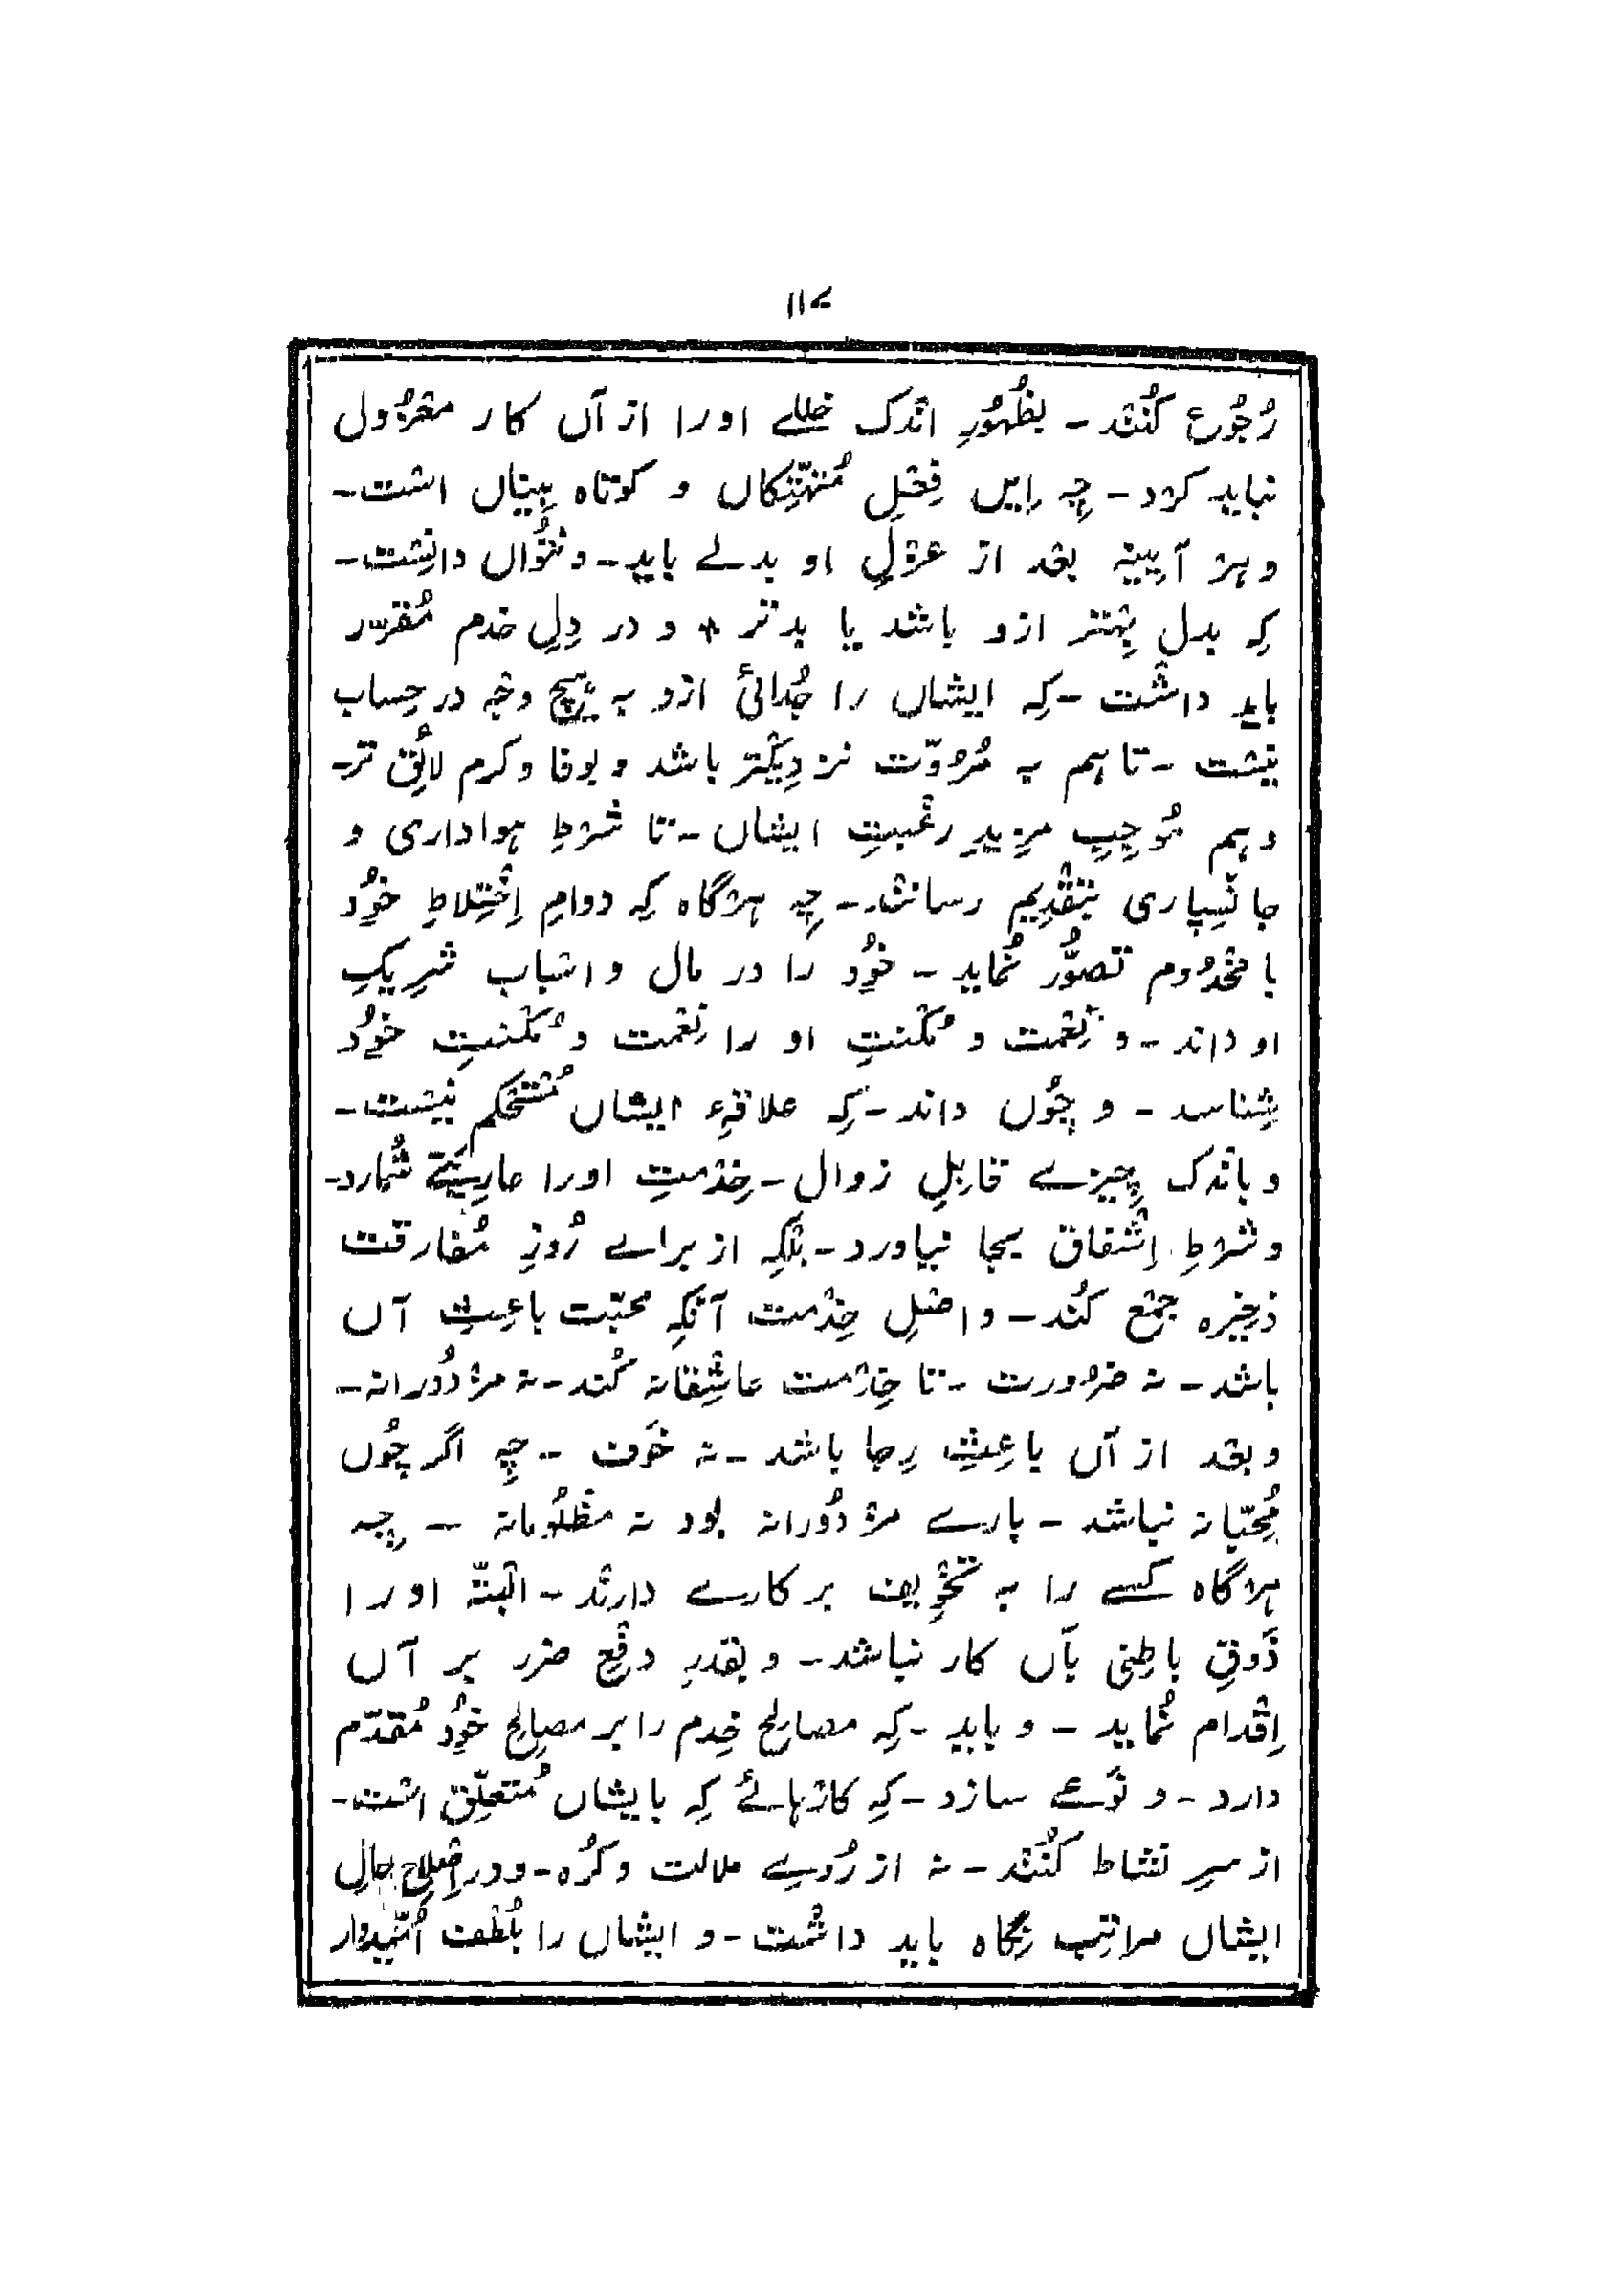 ۱۱۷
رُجُوع کُنَنْد - بظُہُورِ اَنْدک خللے اورا ازآں کار مغزُول
نباید کرد - چِہ اِیں فِعْلِ مُتہتِّکاں و کوتاہ بِیناں اسْت -
و ہر آیینہ بعْد از عزْلِ او بدلے باید - و نتُواں دانِسْت -
کِہ بدل بِہْتر ازو باشد یا بدتر * و در دِلِ خدم مُقرّر
باید داشْت - کِہ ایشاں را جُدائی ازو بہ ہیچ وجْہ در حِساب
نیسْت - تا ہم بہ مُروّت نزدِیکْتر باشد و بوفا و کرم لائِق تر -
و ہم مُوجِبِ مزِیدِ رغْبتِ ایشاں - تا شرْطِ ہواداری و
جانْسِپاری بتقْدِیم رسانند - چِہ ہرْگاہ کِہ دوامِ اِخْتِلاطِ خوُد
با مخْدُوم تصوُّر نُماید - خوُد را در مال و اسْباب شرِیکِ
او داند - و نِعْمت و مُکْنتِ او را نِعْمت و مُکْنتِ خوُد
شِناسد - و چوُں داند - کِہ علاقۂ ایشاں مُسْتحْکم نیسْت -
و باَنْدک چِیزے قابِلِ زوال - خِدْمتِ اورا عارِیَتے شُمارد -
و شرْطِ اِشْفاق بجا نیاورد - بلْکِہ از براے رُوزِ مُفارقت
ذخِیرہ جمْع کُند - و اصْلِ خِدْمت آنْکِہ محبّت باعِثِ آں
باشد - نہ ضرُورت - تا خِدْمت عاشِقانہ کُند - نہ مزْدُورانہ -
و بعْد از آں باعِث رِجا باشد - نہ خَوف - چِہ اگر چُوں
مُحِبّانہ نباشد - بارے مزْدُورانہ بود نہ مظْلُومانہ - چِہ
ہرْگاہ کسے را بہ تخْوِیف بر کارے دارنْد - الْبتّہ او را
ذَوقِ باطِنی بآں کار نباشد - و بقدرِ دفْعِ ضرر بر آں
اِقْدام نُماید - و باید - کِہ مصالِح خِدم را بر مصالِح خوُد مُقدّم
دارد - و نَوعے سازد - کِہ کارْہائے کِہ بایشاں مُتعلِّق اسْت -
از سرِ نشاط کُنَنْد - نہ از رُوے ملالت و کُرْہ - و در اِصْلاحِ حالِ
ایشاں مراتِب نِگاہ باید داشْت - و ایشاں را بلُطْف اُمّیدوار